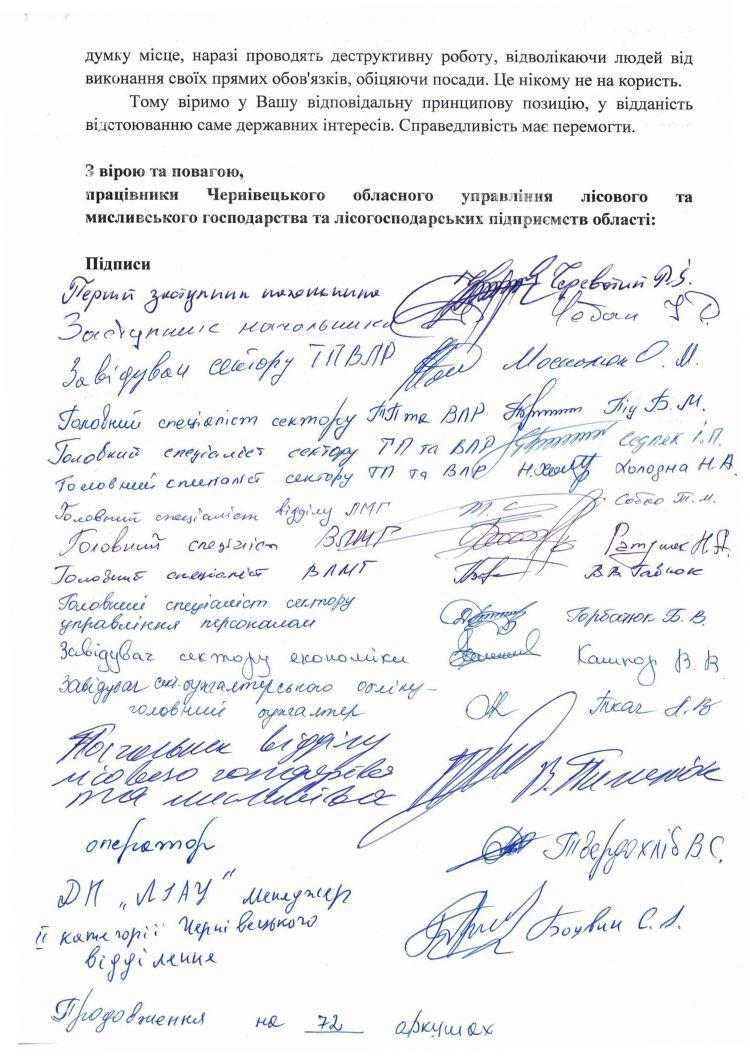 думку місце, наразі проводять деструктивну роботу, відволікаючи людей від
виконання своїх прямих обов'язків, обіцяючи посади. Це нікому не на користь.
Тому віримо у Вашу відповідальну принципову позицію, у відданість
відстоюванню саме державних інтересів. Справедливість має перемогти.
З вірою та повагою,
працівники Чернівецького обласного управління лісового та
мисливського господарства та лісогосподарських підприємств області:
Підписи
Перший заступник начальника
Заступник начальника Чобан
Завідувач сектору ТПВЛР Москалюк О. М.
Головний спеціаліст сектору ТП та ВЛР Під Б. М.
Головний спеціаліст сектору ТП та ВЛР Седлек І. П.
Головний спеціаліст сектору ТП та ВЛР Холодна Н. А.
Головний спеціаліст відділу ЛМГ Собко Т. М.
Головний спеціаліст ВЛМГ
Головний спеціаліст ВЛМГ
Головний спеціаліст сектору
управління персоналом Горбатюк Б. В.
Завідувач сектору економіки Кашпор В. В
Завідувач сек. бухгалтерського обліку-
головний бухгалтер Ткач
Начальник відділу
лісового господарства
та мисливства
оператор Твердохліб В. С.
ДП „ЛІАЦ" менеджер
ІІ категорії Чернівецького
відділення
Продовження на 72 аркушах